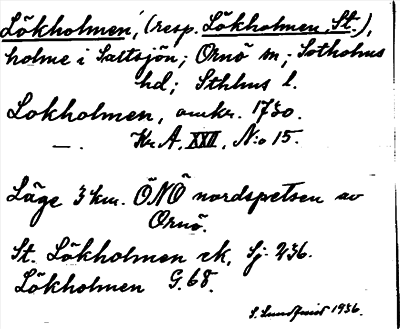 Lökholmen, (resp. Lökholmen, St.),
holme i Saltsjön; Ornö sn; Sotholms
hd; Sthlms l.
Lokholmen, omkr. 1730.
—. Kr. A. XXII, N:o 15.
Läge 3 km. ÖNÖ nordspetsen av
Ornö.
St. Lökholmen ek, Sj. 236.
Lökholmen G.68.
S. Lundqvist 1936.